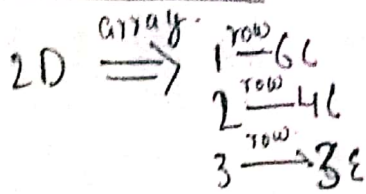 2D array ⇒ 1 row 6C
2 row 4C
3 row 3C